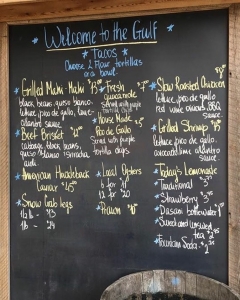 Welcome to the Gulf
* Tacos *
Choose 2 Flour tortillas
or a bowl.
* Grilled Mahi-Mahi
black beans, queso blanco,
lettuce, pico de gallo, lime-
cilantro sauce
* Beef Brisket
cabbage, black beans,
queso blanco,
aioli
* American Hackleback
Caviar
* Snow Crab legs
1/2 lb -
1 lb - 24
* Fresh
guacamole
Served with purple
tortilla chips
* House Made
Pico de Gallo
Served with purple
tortilla chips.
* Local Oysters
* Prawn
* Slow Roasted Chicken
lettuce, pico de gallo
red wine
sauce
* Grilled Shrimp
lettuce, pico de gallo,
avocado lime cilantro
sauce
* Today's Lemonade
* Traditional
* Strawberry
* Dasani bottle water
* Sweet and unsweet
tea
* Fountain Soda -